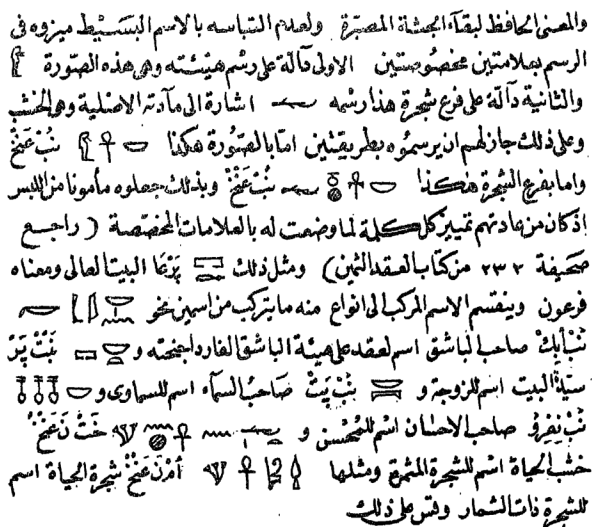 والمعنى الحافظ لبقاء الجثة المصبرة ولعدم التباسه بالاسم البسيط ميزوه فى
الرسم بعلامتين مخصوصتين الاولى دالة على رسم هيئته وهى هذه الصورة
والثانية دالة على فرع شجرة هذا رسمه اشارة الى مادته الاصلية وهى الخشب
وعلى ذلك جاز لهم ان يرسموه بطريقتين اما بالصورة هكذا نُبْ عَنْخْ
واما بفرع الشجرة هكذا نُبْ عَنْخْ وبذلك جعلوه مأمونا من اللبس
اذ كان من عادتهم تمييز كل كلمة لما وضعت له بالعلامات المخصصة ( راجع
صحيفة ٢٣٢ من كتاب العقد الثمين ) ومثل ذلك پَرْعَا البيت العالى ومعناه
فرعون وينقسم الاسم المركب الى انواع منه ما يتركب من اسمين نحو
نُبْ بَايِكْ صاحب الباشق اسم لعقد على هيئة الباشق الفارد اجنحته و نِبْتْ پَرْ
سيدة البيت اسم للزوجة و نِبْ پَتْ صاحب السماء اسم للسماوى و
نُبْ نِفِرُو صاحب الاحسان اسم للمحسن و خَتْ نَ عَنْخْ
خشب الحياة اسم للشجرة المثمرة ومثلها أمْ نْ عَنْخْ شجرة الحياة اسم
للشجرة ذات الثمار وقس على ذلك